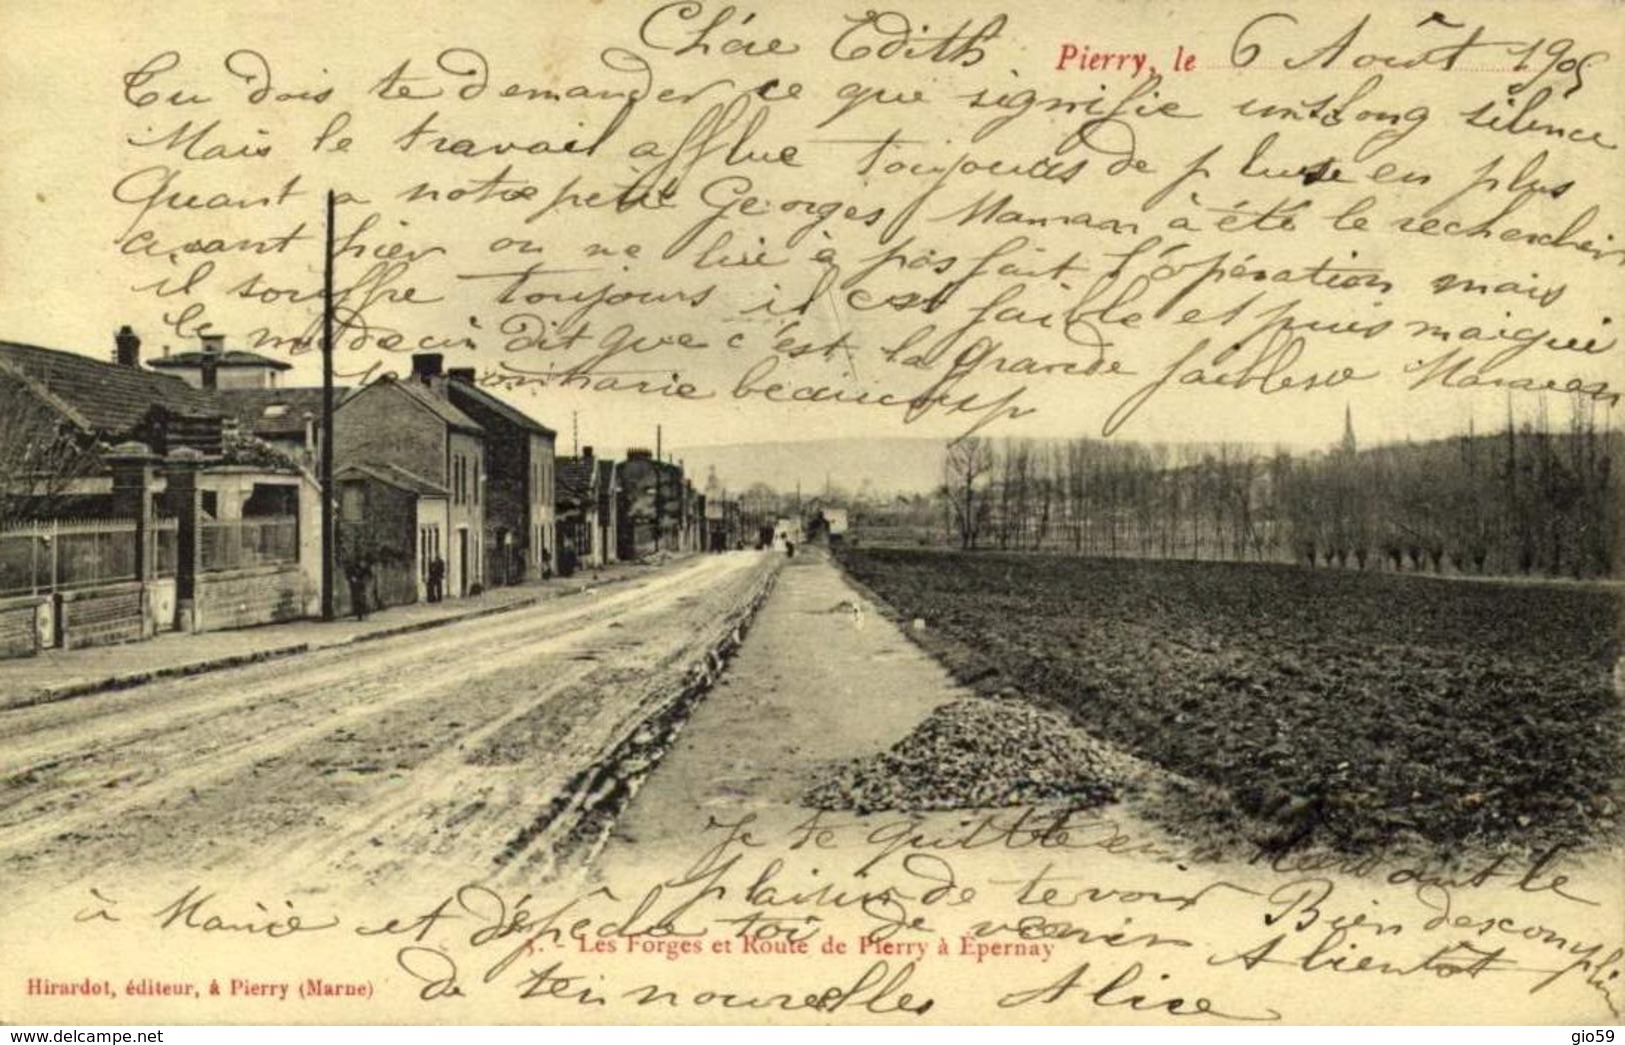 Chére Edith
Pierry, le 6 Août 1905
Tu dois te demander ce que signifie un si long silence
Mais le travail afflue toujours de plus en plus
Quant a notre petit Georges Maman à été le rechercher
avant hier on ne lui à pas fait l'opération mais
il souffre toujours il est faible et puis maigri
le medecin dit que c'est la grande faiblesse Maman
se contrarie beaucoup
Je te quitte en attendant le
plaisir de te voir Bien des compliments
à Marie et dépêche toi de venir A bientôt
de tes nouvelles Alice
3. - Les Forges et Route de Pierry à Epernay
Hirardot, éditeur, à Pierry (Marne)
www.delcampe.net
gio59